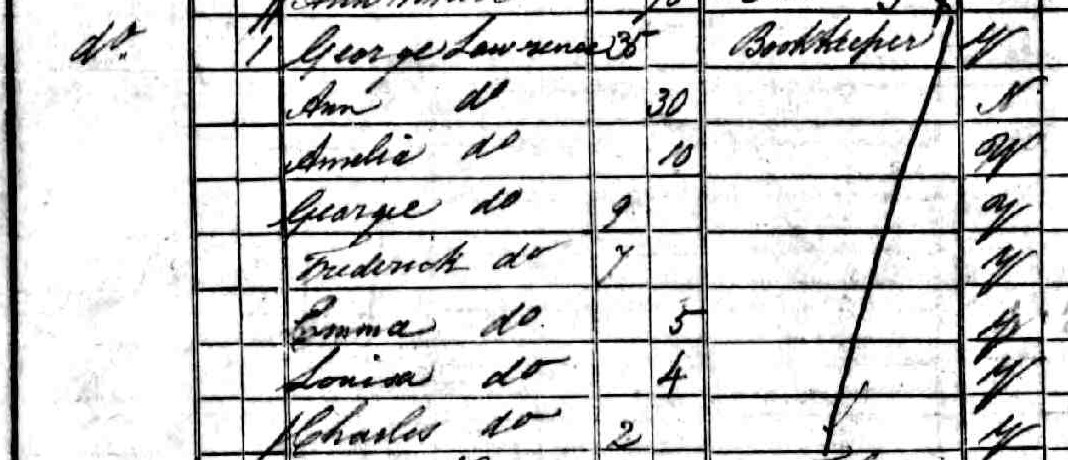 do 1 George Lawrence 35 Bookkeeper Y
Ann do 30 N
Amelia do 10 Y
George do 9 Y
Frederick do 7 Y
Emma do 5 Y
Louisa do 4 Y
Charles do 2 Y